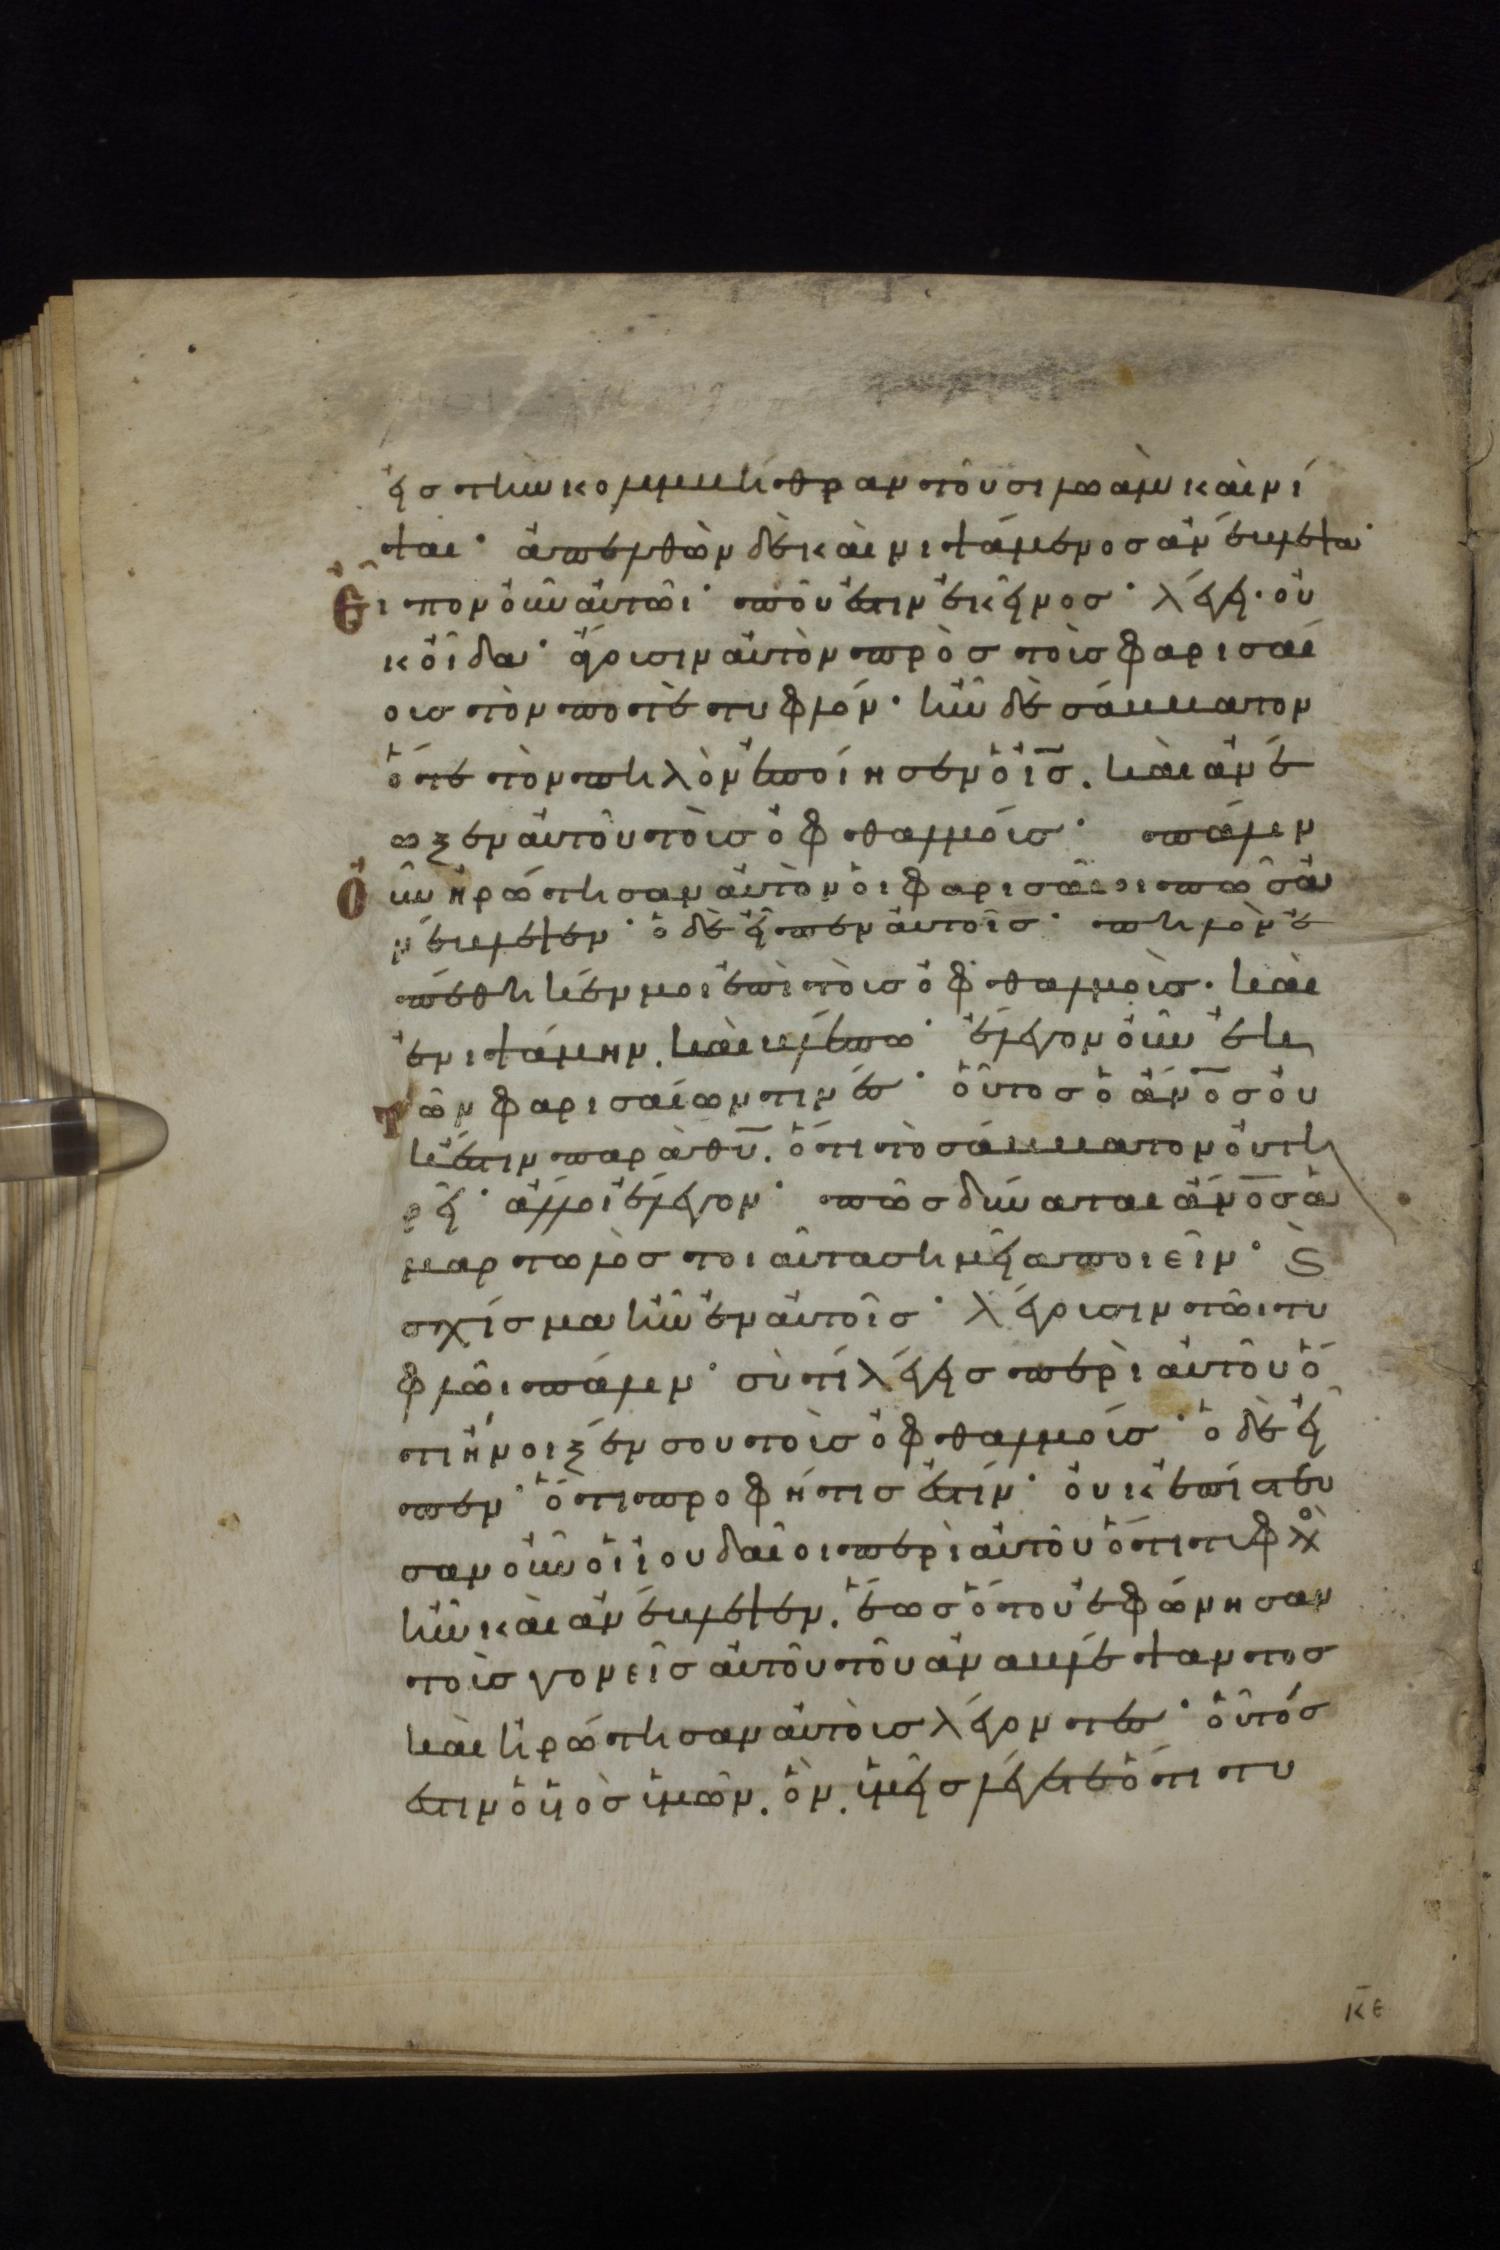 εἰς τὴν κολυμβήθραν τοῦ σιλωὰμ καὶ νί
ψαι· ἀπελθὼν δὲ καὶ νιψάμενος ἀνέβλεψα·
Εἶπον οὖν αὐτῶι· ποῦ ἐστιν ἐκεῖνος· λέγει· οὐ
κ οἶδα· ἄγουσιν αὐτὸν πρὸς τοὺς φαρισαί
ους τὸν ποτὲ τυφλόν· ἦν δὲ σάββατον
ὅτε τὸν πηλὸν ἐποίησεν ὁ ις̅. καὶ ἀνέ
ωξεν αὐτοῦ τοὺς ὀφθαλμούς· πάλιν
οὖν ἠρώτησαν αὐτὸν οἱ φαρισαῖοι πῶς ἀ
νέβλεψεν· ὁ δὲ εἶπεν αὐτοῖς· πηλὸν ἐ
πέθηκέν μοι ἐπὶ τοὺς ὀφθαλμοὺς. καὶ
ἐνιψάμην. καὶ βλέπω· ἔλεγον οὖν ἐκ
τῶν φαρισαίων τινές· οὗτος ὁ ἄν̅ος οὐ
κ ἔστιν παρὰ θυ̅. ὅτι τὸ σάββατον οὐ τη
ρεῖ· ἄλλοι ἔλεγον· πῶς δύναται ἄν̅ος ἁ
μαρτωλὸς τοιαῦτα σημεῖα ποιεῖν· Ϛ̀
σχίσμα ἦν ἐν αὐτοῖς· λέγουσιν τῶι τυ
φλῶι πάλιν· σὺ τί λέγεις περὶ αὐτοῦ ὅ
τι ἤνοιξέν σου τοὺς ὀφθαλμούς· ὁ δὲ εἶ
πεν· ὅτι προφήτις ἐστίν· οὐκ ἐπίστευ
σαν οὖν οἱ ἰουδαῖοι περὶ αὐτοῦ ὅτι τυφλὸ
ἦν καὶ ἀνέβλεψεν. ἕως ὅτου ἐφώνησαν
τοὺς γονεῖς αὐτοῦ τοῦ ἀναβλέψαντος
καὶ ἠρώτησαν αὐτοὺς λέγοντες· οὗτός
ἐστιν ὁ υἱὸς ὑμῶν. ὃν. ὑμεῖς λέγετε ὅτι τυ
κ̅ε